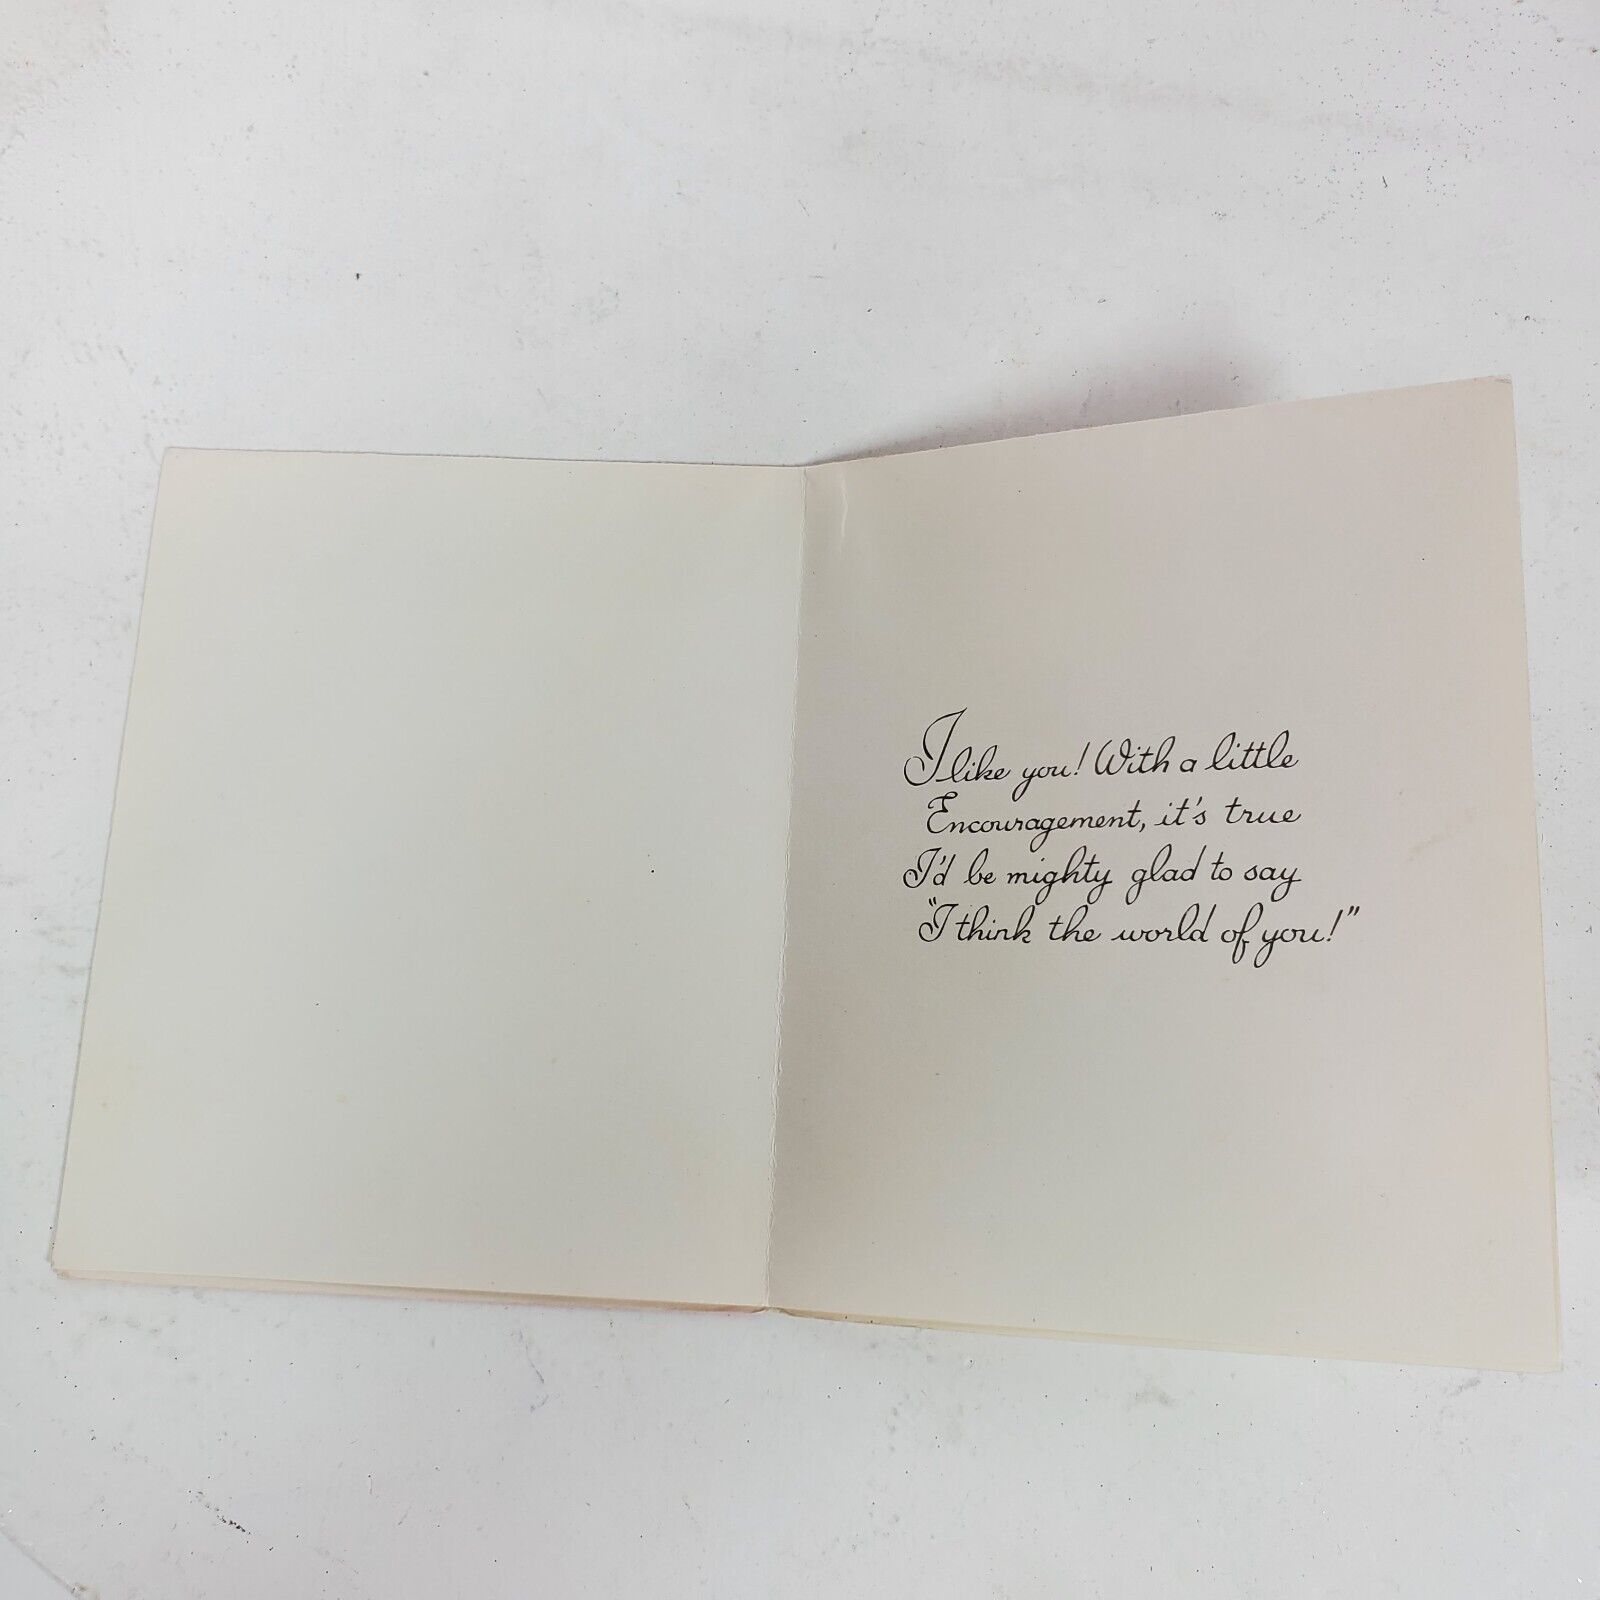 I like you! With a little
Encouragement, it's true
I'd be mighty glad to say
"I think the world of you!"